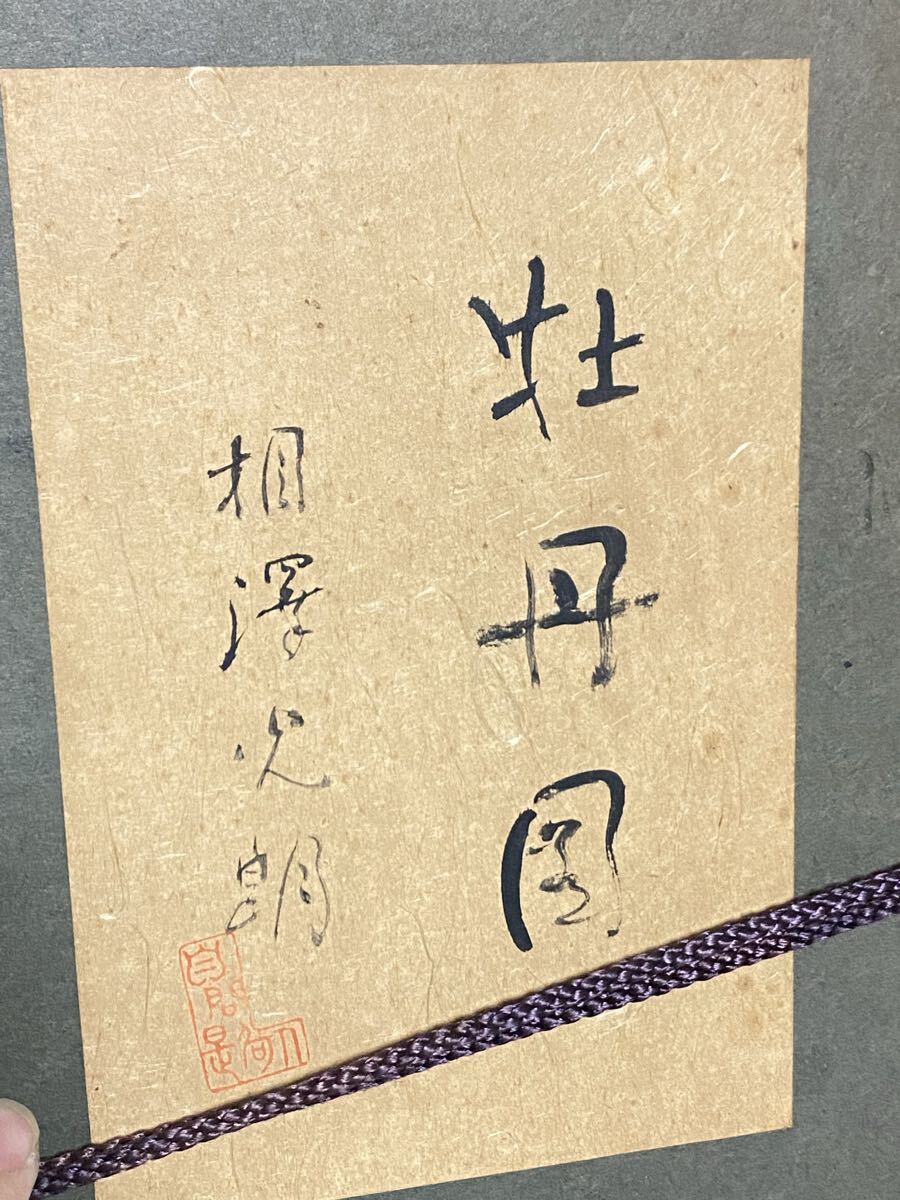 牡丹図
相澤光朗